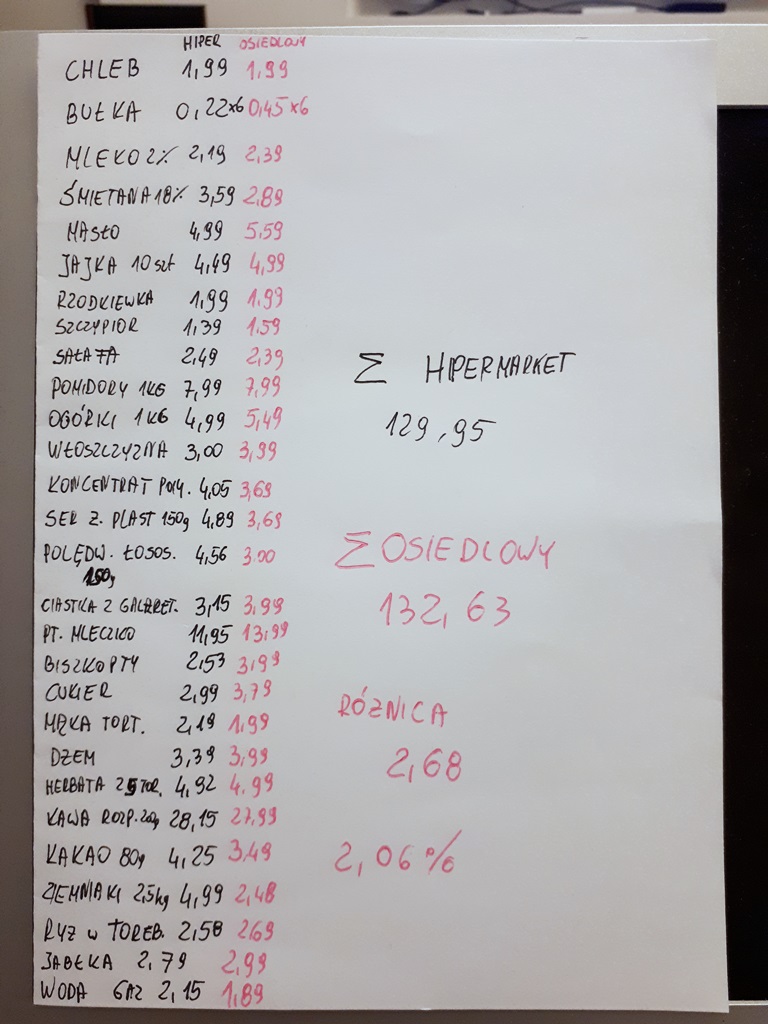 HIPER OSIEDLOWY
CHLEB 1,99 1,99
BUŁKA 0,22x6 0,45x6
MLEKO 2% 2,19 2,39
ŚMIETANA 18% 3,59 2,89
MASŁO 4,99 5,59
JAJKA 10szt 4,49 4,99
RZODKIEWKA 1,99 1,99
SZCZYPIOR 1,39 1.59
SAŁATA 2,49 2,39
POMIDORY 1KG 7,99 7,99
OGÓRKI 1KG 4,99 5,49
WŁOSZCZYZNA 3,00 3,99
KONCENTRAT POM. 4,05 3,69
SER Z. PLAST 150g 4,89 3,69
POLĘDW. ŁOSOS. 4,56 3.00
150g
CIASTKA Z GALARET. 3,15 3,99
PT. MLECZKO 11,95 13,99
BISZKOPTY 2,53 3,99
CUKIER 2,99 3,79
MĄKA TORT. 2,19 1,99
DŻEM 3,39 3,99
HERBATA 25 TOR. 4,92 4.99
KAWA ROZP. 200g 28,15 27,99
KAKAO 80g 4,25 3,49
ZIEMNIAKI 2,5kg 4,99 2,48
RYŻ W TOREB. 2,58 2,69
JABŁKA 2,79 2,99
WODA GAZ 2,15 1,89
Σ HIPERMARKET
129,95
Σ OSIEDLOWY
132,63
RÓŻNICA
2,68
2,06%